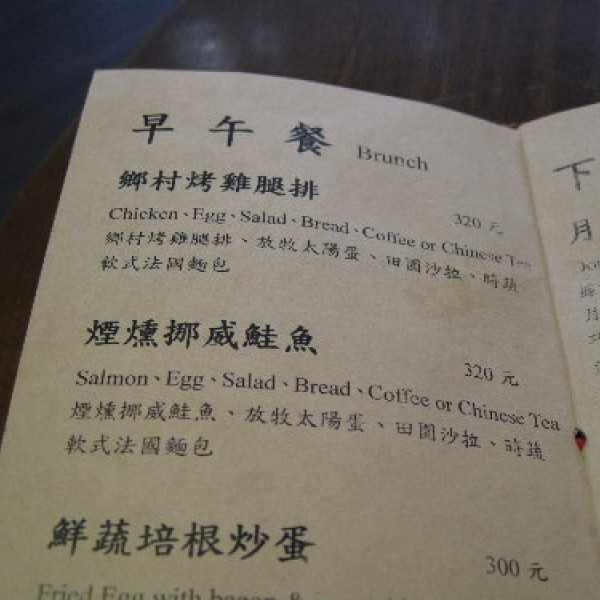 早午餐 Brunch
鄉村烤雞腿排 320 元
Chicken、Egg、Salad、Bread、Coffee or Chinese Tea
鄉村烤雞腿排、放牧太陽蛋、田園沙拉、時蔬
軟式法國麵包
煙燻挪威鮭魚 320 元
Salmon、Egg、Salad、Bread、Coffee or Chinese Tea
煙燻挪威鮭魚、放牧太陽蛋、田園沙拉、時蔬
軟式法國麵包
鮮蔬培根炒蛋 300 元
Fried Egg with bacon &
下
月